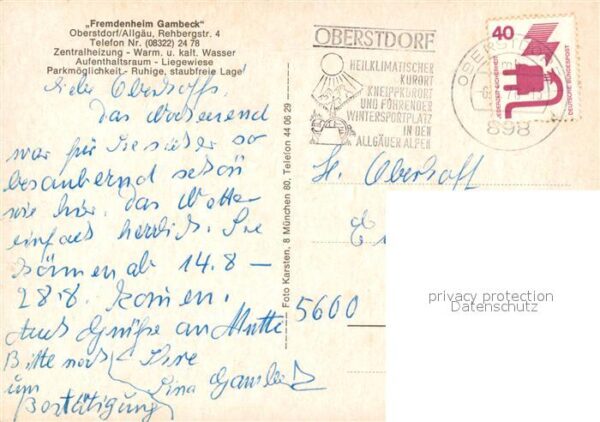 „Fremdenheim Gambeck“
Oberstdorf/Allgäu, Rehbergstr. 4
Telefon Nr. (08322) 24 78
Zentralheizung - Warm. u. kalt. Wasser
Aufenthaltsraum - Liegewiese
Parkmöglichkeit - Ruhige, staubfreie Lage
Liebe Oberhoffs,
das Wochenend
war für Sie sicher so
bezaubernd schön
wie hier. das Wetter
einfach herrlich. Sie
können ab 14.8 –
28.8. komen.
Auch Grüße an Mutti
Bitte noch Ihre
um Lina Gambeck
Bestätigung
Foto Karsten, 8 München 80, Telefon 44 06 29
OBERSTDORF
HEILKLIMATISCHER
KURORT
KNEIPPKURORT
UND FÜHRENDER
WINTERSPORTPLATZ
IN DEN
ALLGÄUER ALPEN
OBERSTDORF
898
40
JEDERZEIT SICHERHEIT
DEUTSCHE BUNDESPOST
Oberhoff
5600
privacy protection
Datenschutz